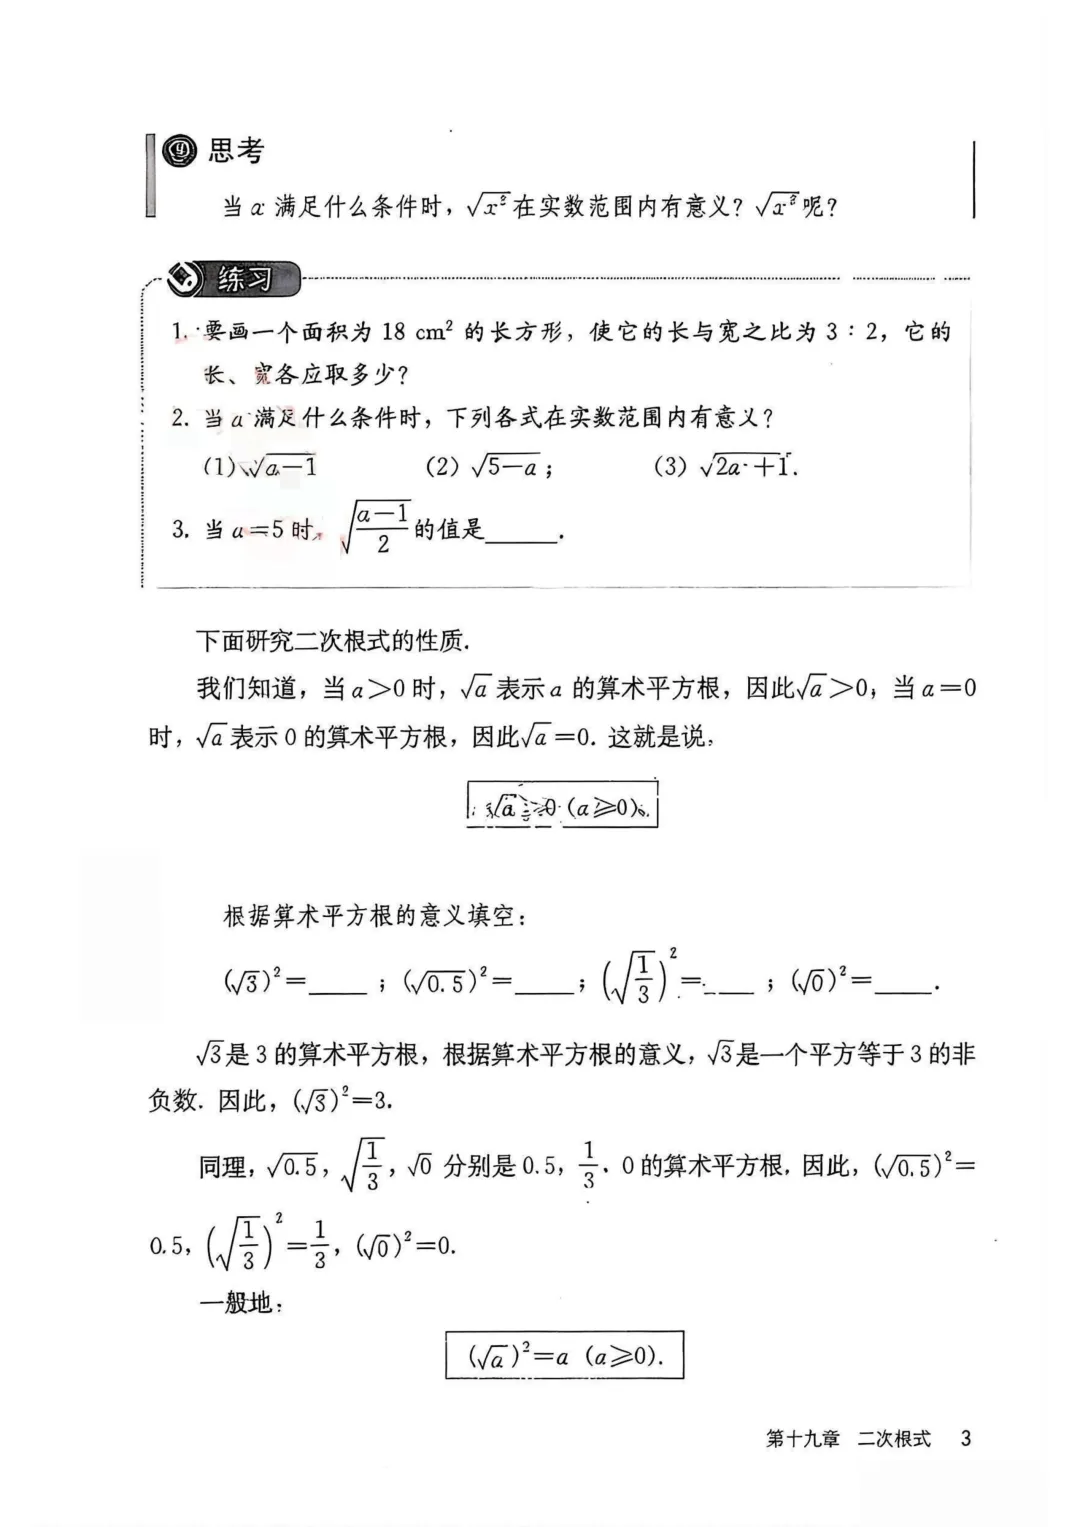 思考
当 x 满足什么条件时，√x² 在实数范围内有意义？√x³ 呢？
练习
1. 要画一个面积为 18 cm² 的长方形，使它的长与宽之比为 3：2，它的
长、宽各应取多少？
2. 当 a 满足什么条件时，下列各式在实数范围内有意义？
(1) √(a−1) (2) √(5−a)； (3) √(2a+1).
3. 当 a=5 时，√((a−1)/2) 的值是______.
下面研究二次根式的性质.
我们知道，当 a＞0 时，√a 表示 a 的算术平方根，因此√a＞0；当 a=0
时，√a 表示 0 的算术平方根，因此√a=0. 这就是说，
√a ≥0 (a≥0).
根据算术平方根的意义填空：
(√3)²=____；(√0.5)²=____；(√(1/3))²=____；(√0)²=____.
√3是 3 的算术平方根，根据算术平方根的意义，√3是一个平方等于 3 的非
负数. 因此，(√3)²=3.
同理，√0.5，√(1/3)，√0 分别是 0.5，1/3，0 的算术平方根. 因此，(√0.5)²=
0.5，(√(1/3))²=1/3，(√0)²=0.
一般地：
(√a)²=a (a≥0).
第十九章 二次根式 3